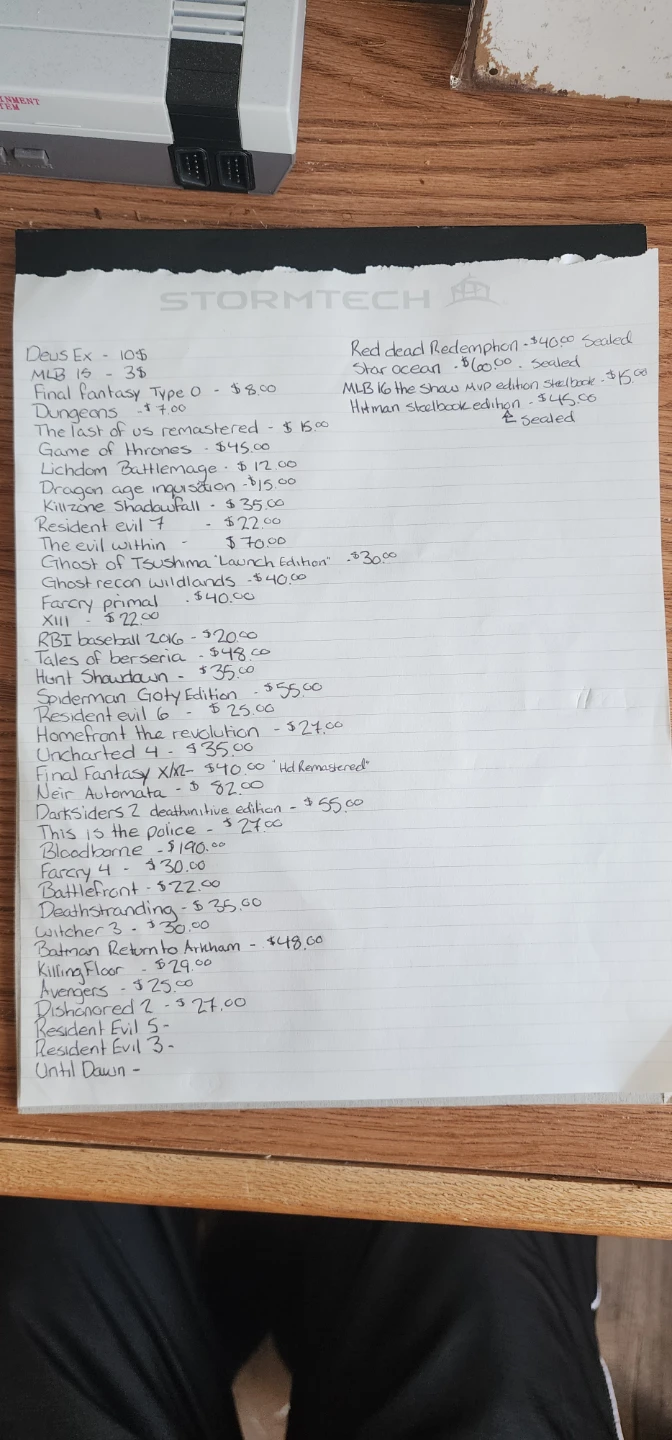 INMENT
TEM
STORMTECH
Deus Ex - 10$
MLB 15 - 3$
Final fantasy Type 0 - $8.00
Dungeons - $7.00
The last of us remastered - $15.00
Game of thrones - $45.00
Lichdom Battlemage - $12.00
Dragon age inquisition - $15.00
Killzone Shadowfall - $35.00
Resident evil 7 - $22.00
The evil within - $70.00
Ghost of Tsushima "Launch Edition" - $30.00
Ghost recon wildlands - $40.00
Farcry primal - $40.00
XIII - $22.00
RBI baseball 2016 - $20.00
Tales of berseria - $48.00
Hunt Showdown - $35.00
Spiderman Goty Edition - $55.00
Resident evil 6 - $25.00
Homefront the revolution - $27.00
Uncharted 4 - $35.00
Final Fantasy X/X2 - $40.00 "Hd Remastered"
Neir Automata - $82.00
Darksiders 2 deathinitive edition - $55.00
This is the police - $27.00
Bloodborne - $190.00
Farcry 4 - $30.00
Battlefront - $22.00
Deathstranding - $35.00
Witcher 3 - $30.00
Batman Return to Arkham - $48.00
Killing Floor - $29.00
Avengers - $25.00
Dishonored 2 - $27.00
Resident Evil 5 -
Resident Evil 3 -
Until Dawn -
Red dead Redemption - $40.00 Sealed
Star ocean - $60.00 - Sealed
MLB 16 the Show MVP edition Steelbook - $15.00
Hitman Steelbook edition - $45.00
↑ Sealed